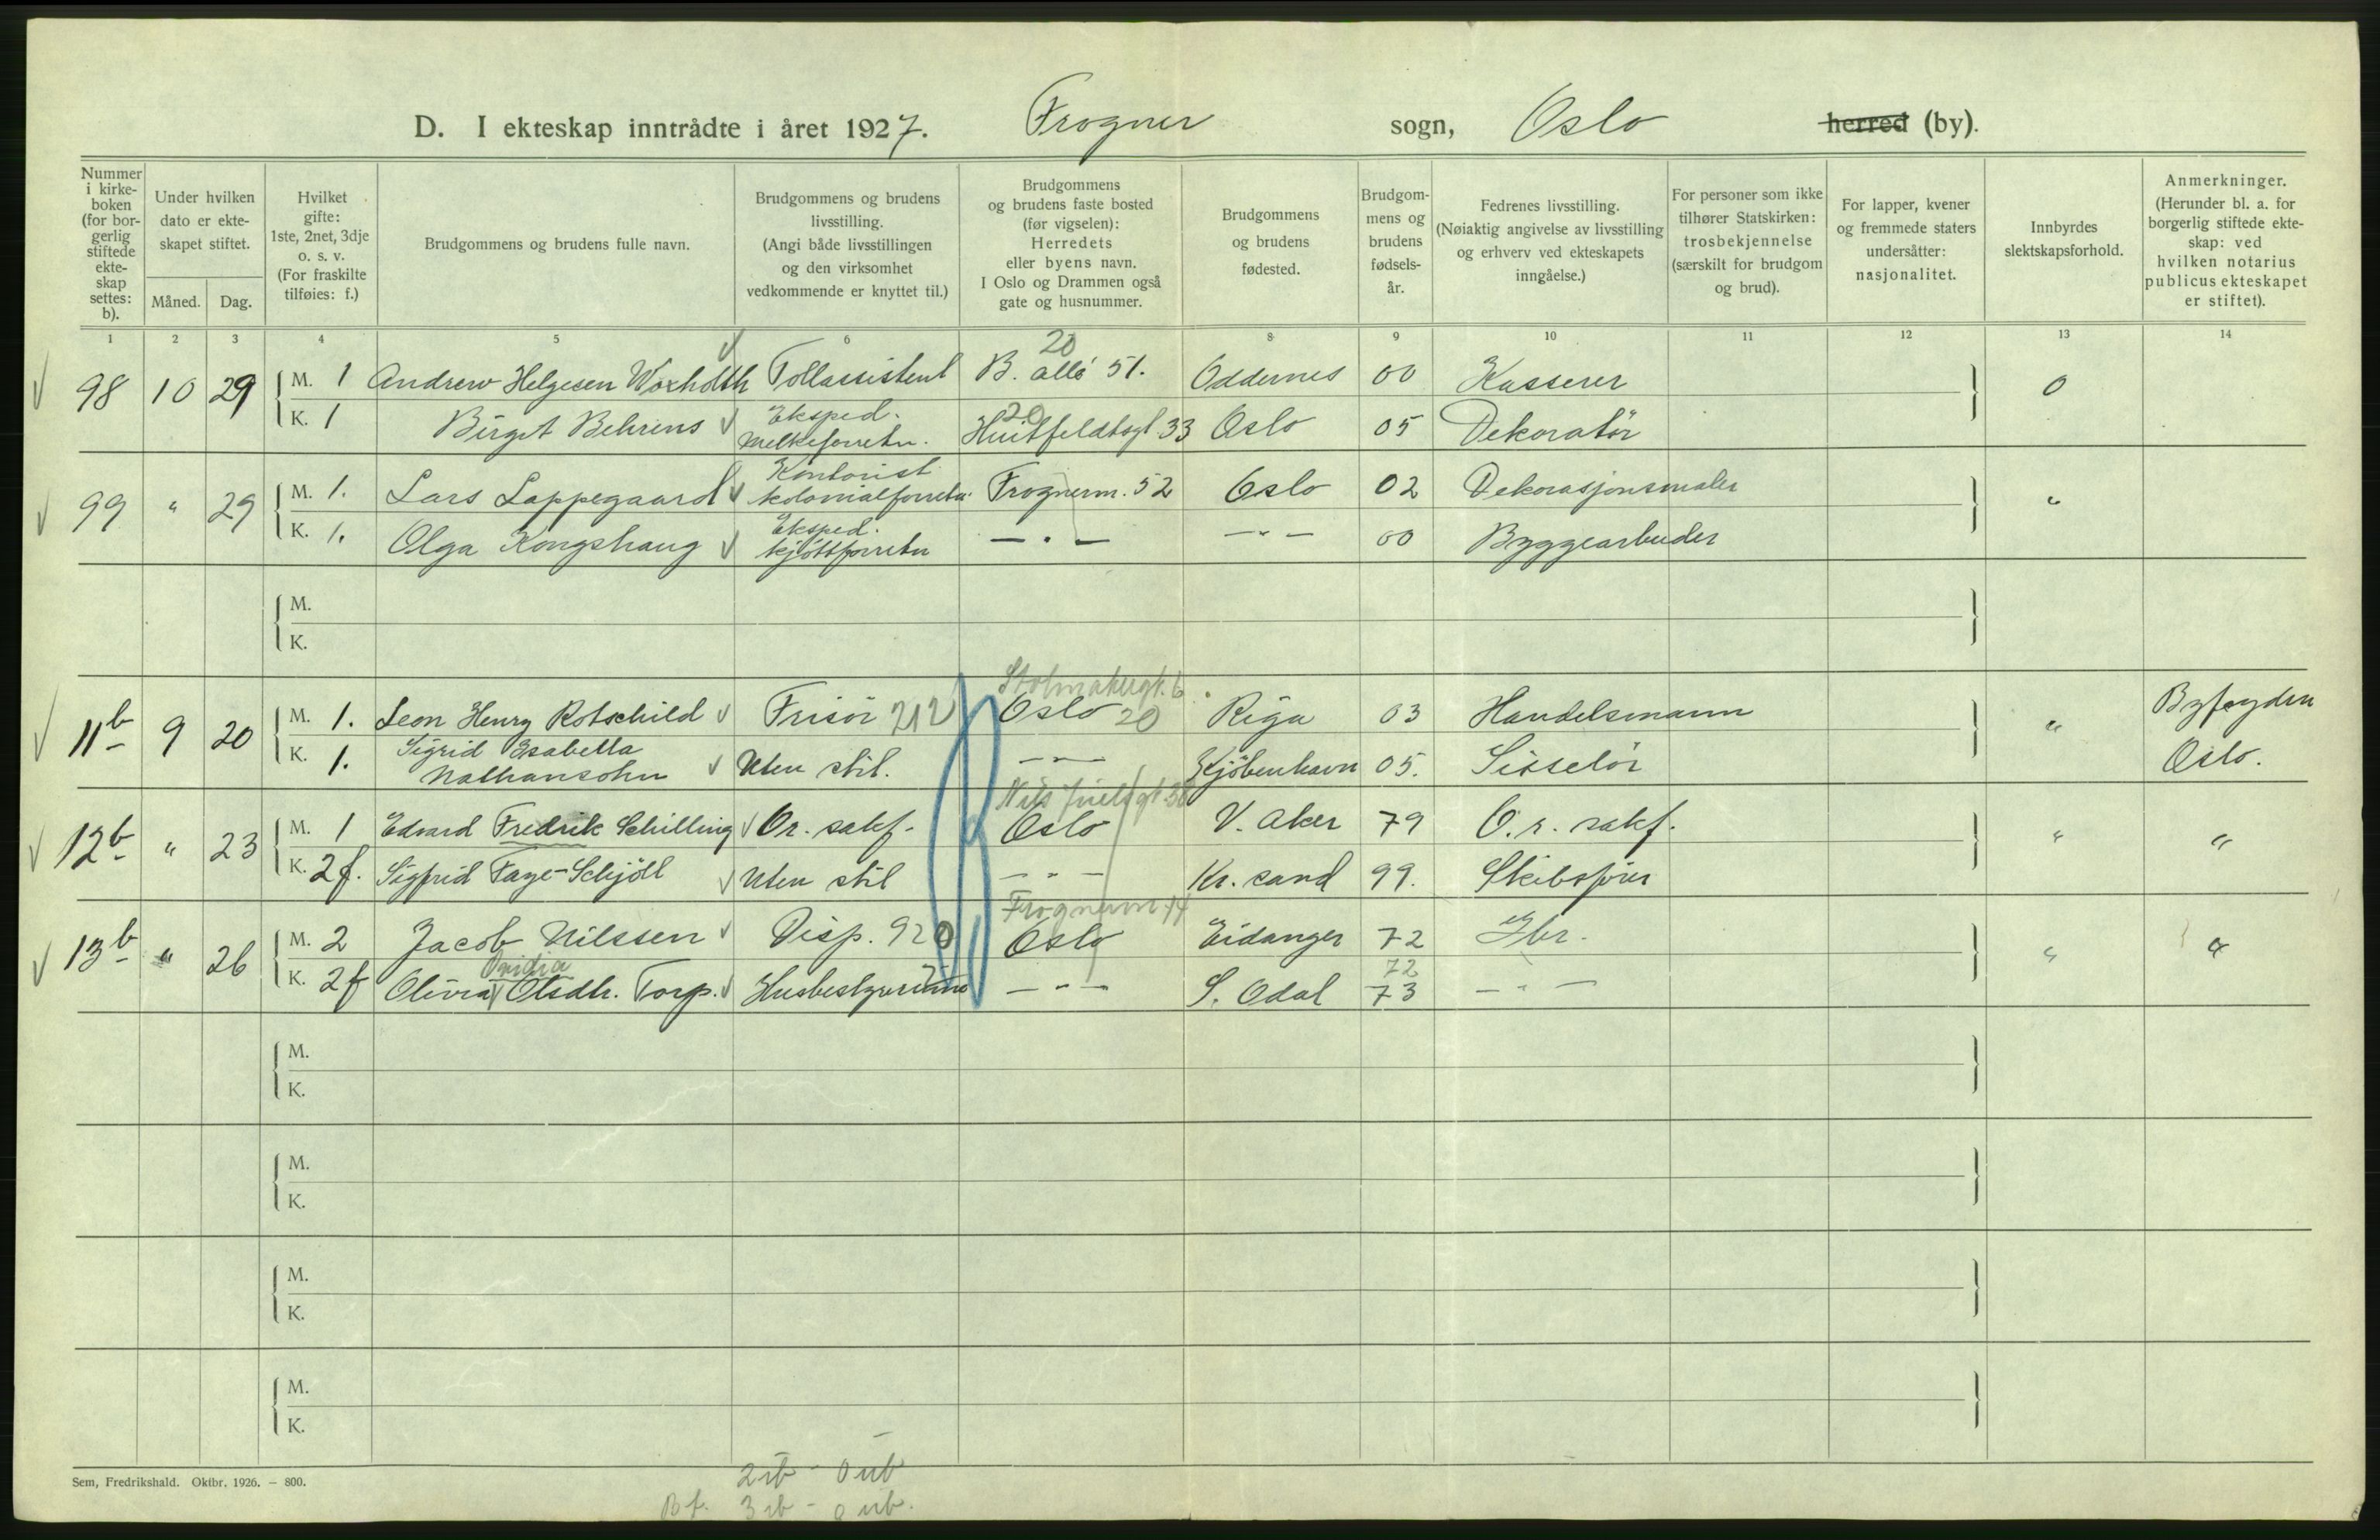 D. I ekteskap inntrådte i året 1927. Frogner sogn, Oslo herred (by).
Nummer i kirkeboken (for borgerlig stiftede ekteskap settes: b).
Under hvilken dato er ekteskapet stiftet.
Måned. Dag.
Hvilket gifte: 1ste, 2net, 3dje o. s. v. (For fraskilte tilføies: f.)
Brudgommens og brudens fulle navn.
Brudgommens og brudens livsstilling. (Angi både livsstillingen og den virksomhet vedkommende er knyttet til.)
Brudgommens og brudens faste bosted (før vigselen): Herredets eller byens navn. I Oslo og Drammen også gate og husnummer.
Brudgommens og brudens fødested.
Brudgommens og brudens fødselsår.
Fedrenes livsstilling. (Nøiaktig angivelse av livsstilling og erhverv ved ekteskapets inngåelse.)
For personer som ikke tilhører Statskirken: trosbekjennelse (særskilt for brudgom og brud).
For lapper, kvener og fremmede staters undersåtter: nasjonalitet.
Innbyrdes slektskapsforhold.
Anmerkninger. (Herunder bl. a. for borgerlig stiftede ekteskap: ved hvilken notarius publicus ekteskapet er stiftet).
1 2 3 4 5 6 8 9 10 11 12 13 14
20
98 10 29 M. 1 Andrew Helgesen Woxholth Tollassistent B. allé 51. Oddernes 00 Kasserer 0
20
K. 1 Birgit Behrens Eksped. Melkeforretn. Huitfeldtsgt. 33 Oslo 05 Dekoratör
99 " 29 M. 1. Lars Lappegaard Kontorist kolonialforretn. Frognerm. 52 Oslo 02 Dekorasjonsmaler "
K. 1. Olga Kongshaug Eksped. kjöttforretn — . — — " — 00 Byggearbeider
M.
K.
Stolmakergt. 6
11b 9 20 M. 1. Leon Henry Rotschild Frisör 212 Oslo 20 Riga 03 Handelsmann " Byfogden
K. 1. Sigrid Isabella Nathansohn Uten stil. — " — Kjöbenhavn 05. Siselör Oslo.
Nils Juelsgt. 38
12b " 23 M. 1 Edvard Fredrik Schilling Or. sakf. Oslo V. Aker 79 O. r. sakf. " "
K. 2 f. Sigfrid Faye-Schjöll Uten stil — " — Kr. sand 99. Skibsförer
Frognerm. 14
13b " 26 M. 2 Jacob Nilssen Disp. 920 Oslo Eidanger 72 Gbr. " "
Ovidia 72
K. 2 f Olivia Olsdtr. Torp. Husbestyrerinne — " — S. Odal 73 — " —
M.
K.
M.
K.
M.
K.
M.
K.
Sem, Fredrikshald. Oktbr. 1926. — 800.
2 ib - 0 ub
Bf. 3 ib - 0 ub.